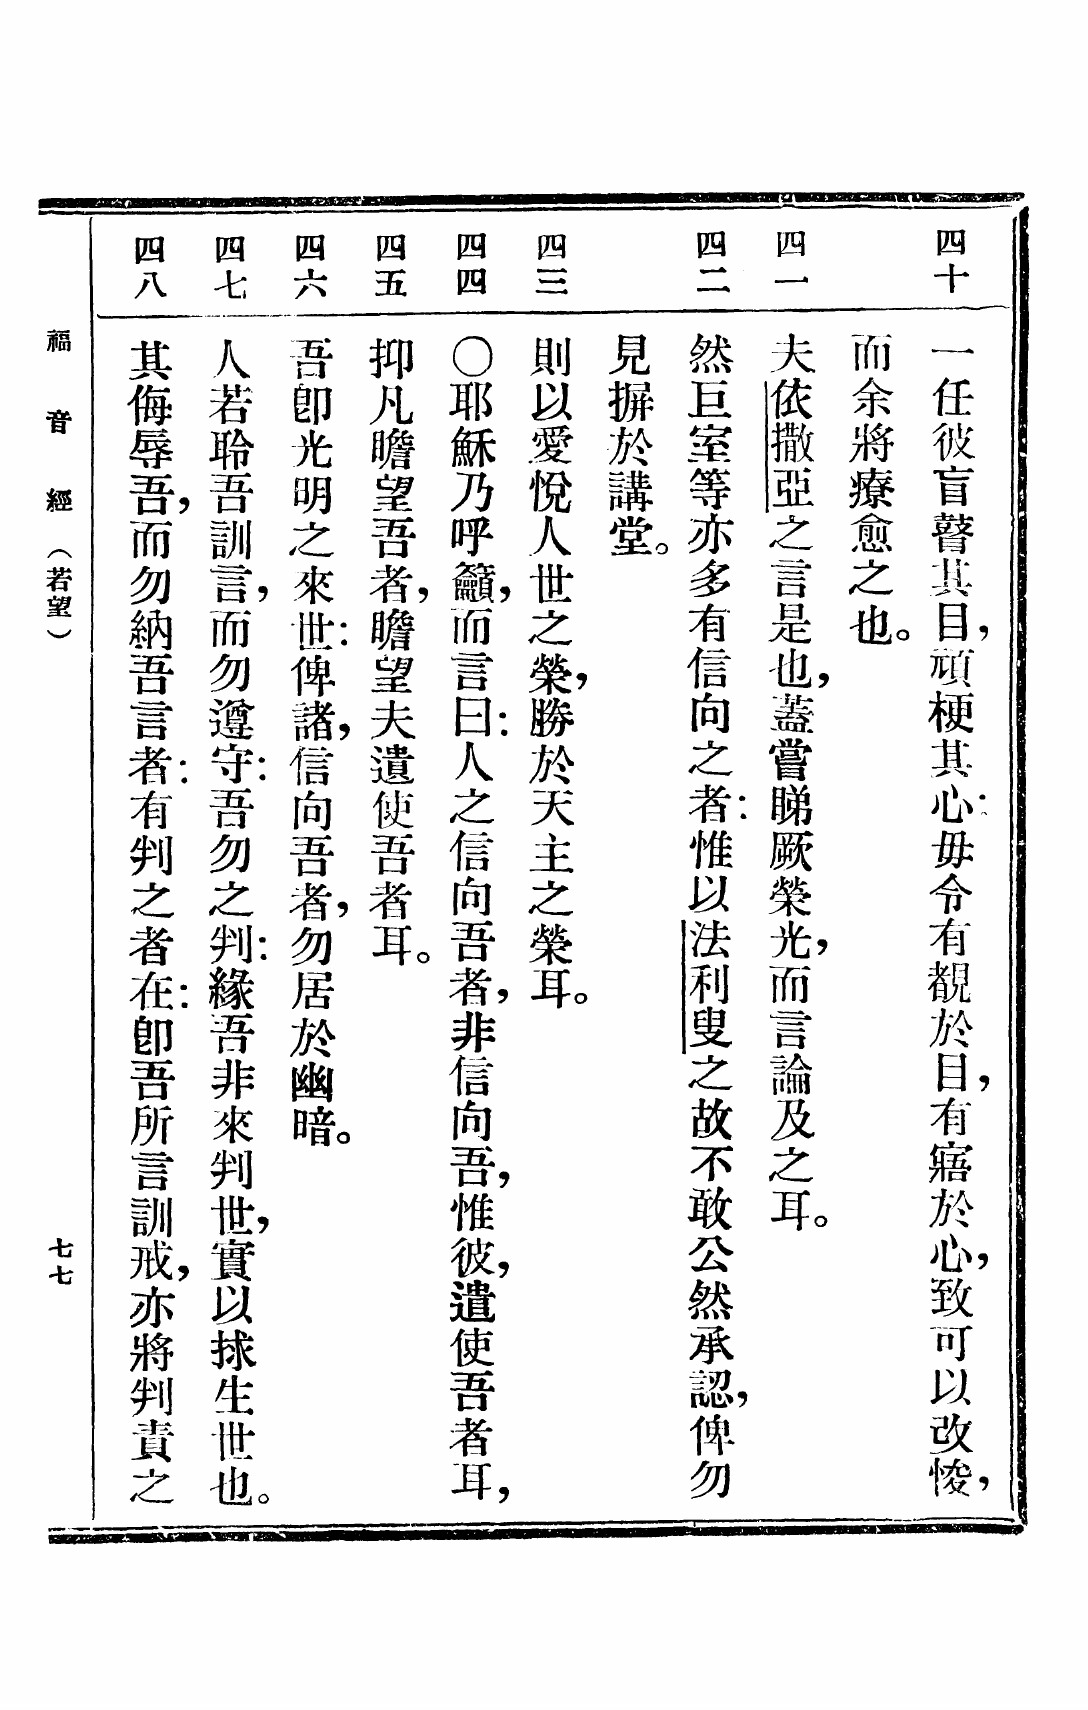 四十
一任彼盲瞽其目，頑梗其心：毋令有覩於目，有寤於心，致可以改悛，
而余將療愈之也。
四一
夫依撒亞之言是也，蓋嘗睇厥榮光，而言論及之耳。
四二
然巨室等亦多有信向之者：惟以法利叟之故不敢公然承認，俾勿
見摒於講堂。
四三
則以愛悅人世之榮，勝於天主之榮耳。
四四
〇耶穌乃呼籲，而言曰：人之信向吾者，非信向吾，惟彼，遣使吾者耳，
四五
抑凡瞻望吾者，瞻望夫遣使吾者耳。
四六
吾卽光明之來世：俾諸，信向吾者，勿居於幽暗。
四七
人若聆吾訓言，而勿遵守：吾勿之判：緣吾非來判世，實以捄生世也。
四八
其侮辱吾，而勿納吾言者：有判之者在：卽吾所言訓戒，亦將判責之
福音經（若望）
七七